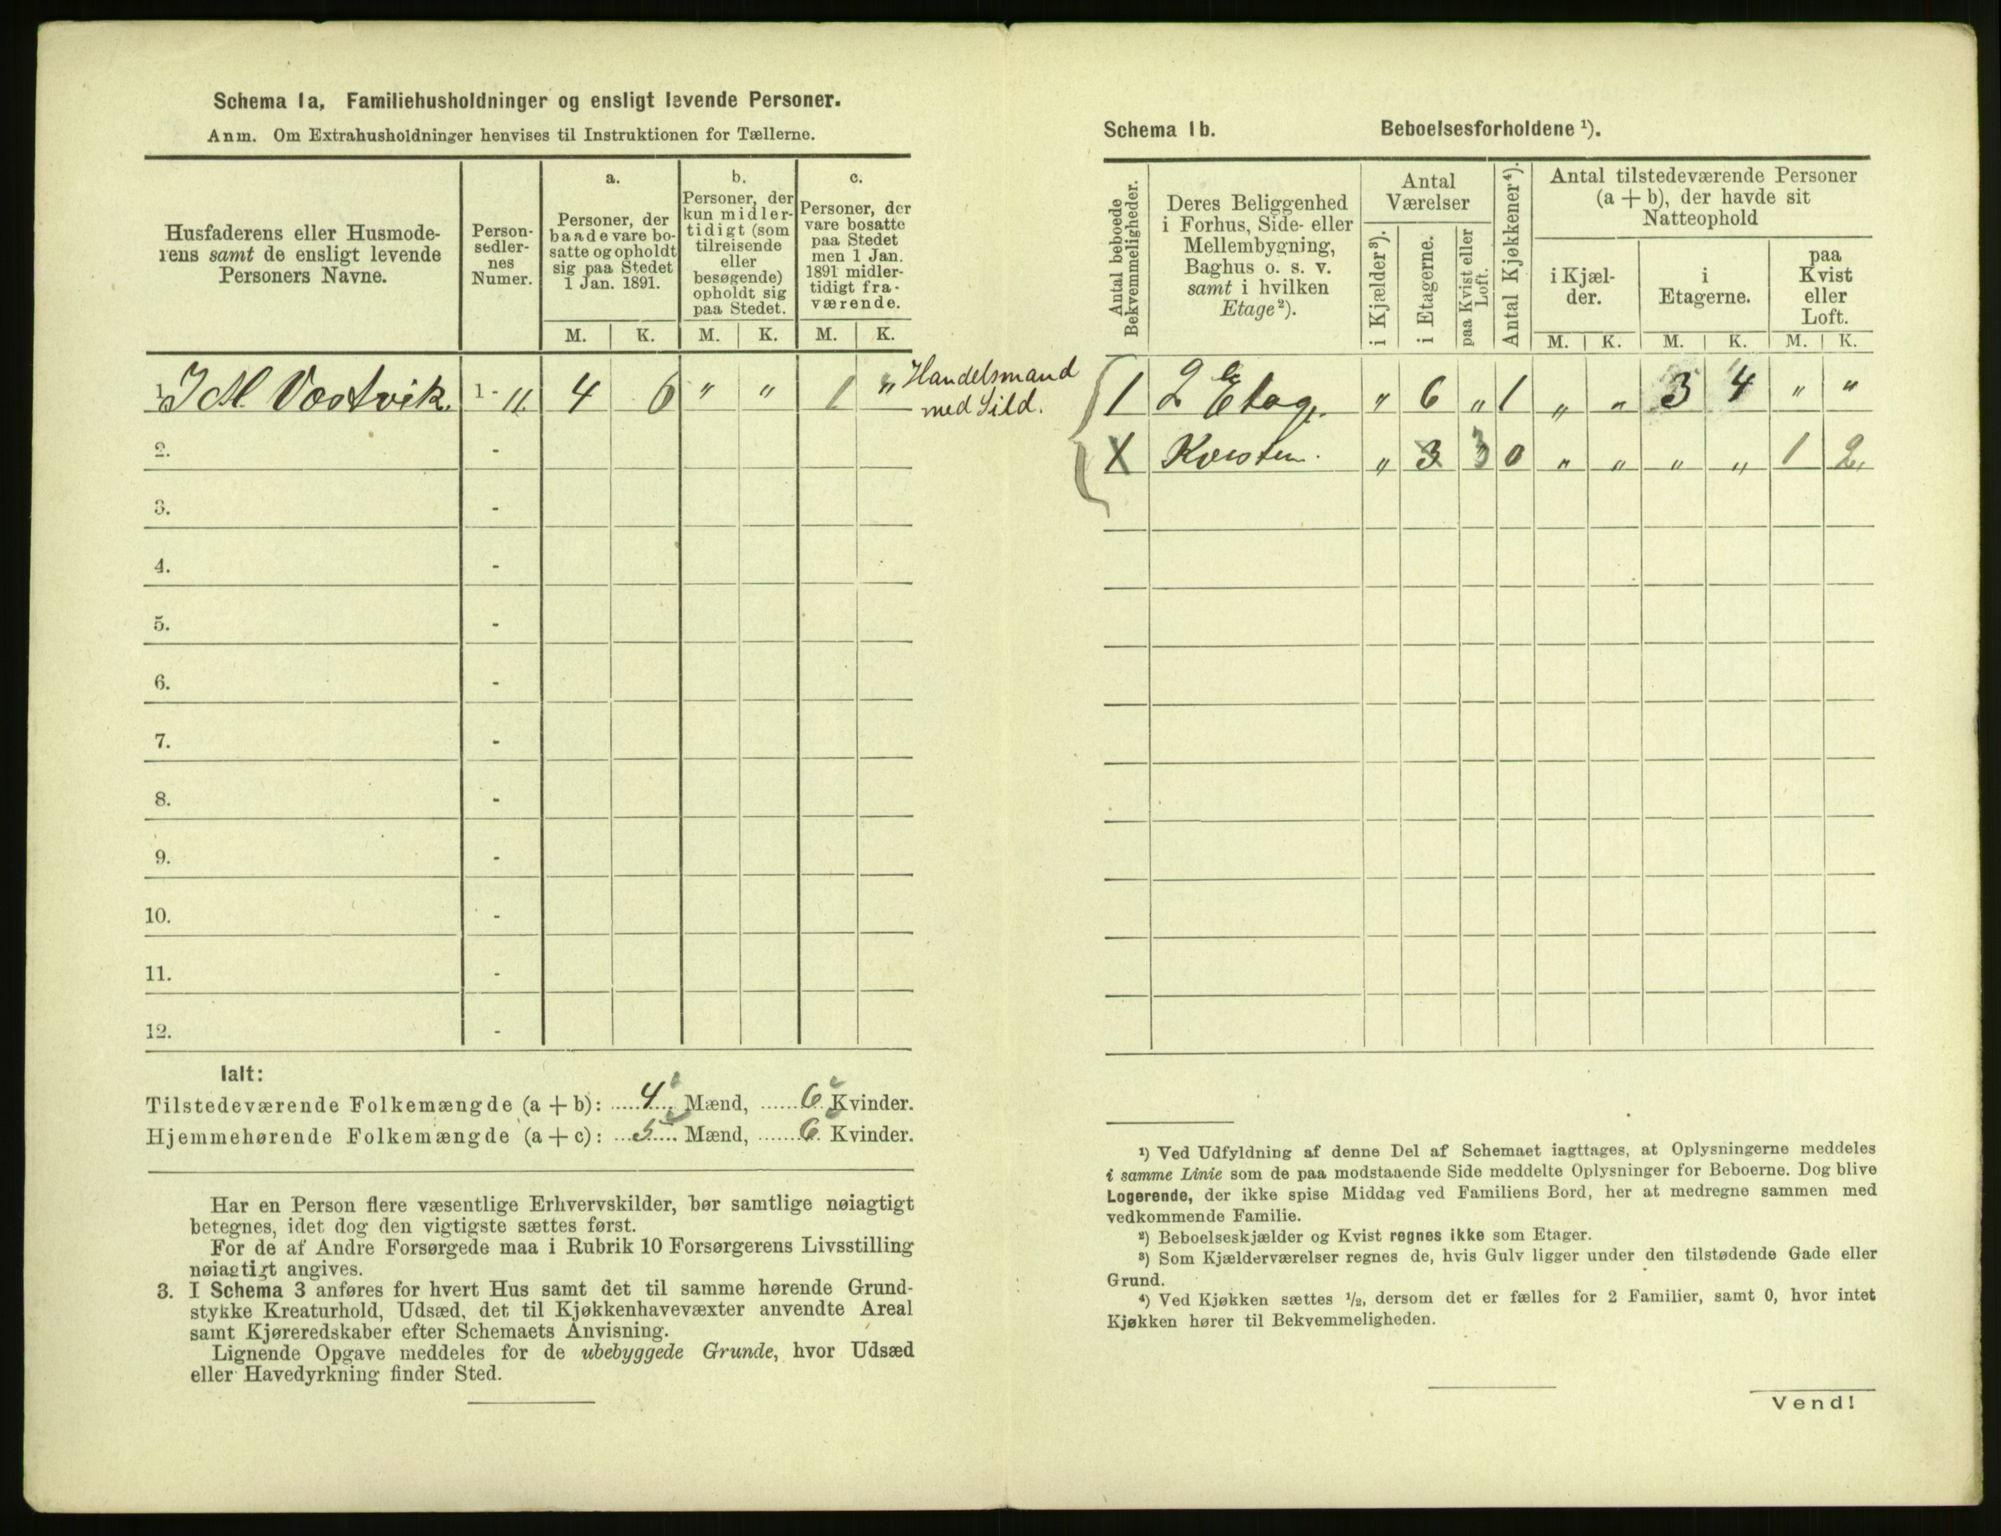 Schema 1a, Familiehusholdninger og ensligt levende Personer.
Anm. Om Extrahusholdninger henvises til Instruktionen for Tællerne.
Husfaderens eller Husmode-
rens samt de ensligt levende
Personers Navne.
Person-
sedler-
nes
Numer.
a.
Personer, der
baade vare bo-
satte og opholdt
sig paa Stedet
1 Jan. 1891.
b.
Personer, der
kun midler-
tidigt (som
tilreisende
eller
besøgende)
opholdt sig
paa Stedet.
c.
Personer, der
vare bosatte
paa Stedet
men 1 Jan.
1891 midler-
tidigt fra-
værende.
M. K. M. K. M. K.
1. J M. Vostvik. 1 - 11. 4 6 " " 1 " Handelsmand
med Sild.
2. -
3. -
4. -
5. -
6. -
7. -
8. -
9. -
10. -
11. -
12. -
Ialt:
Tilstedeværende Folkemængde (a + b): 4 Mænd, 6 Kvinder.
Hjemmehørende Folkemængde (a + c): 5 Mænd, 6 Kvinder.
Har en Person flere væsentlige Erhvervskilder, bør samtlige nøiagtigt
betegnes, idet dog den vigtigste sættes først.
For de af Andre Forsørgede maa i Rubrik 10 Forsørgerens Livsstilling
nøiagtigt angives.
3. I Schema 3 anføres for hvert Hus samt det til samme hørende Grund-
stykke Kreaturhold, Udsæd, det til Kjøkkenhavevæxter anvendte Areal
samt Kjøreredskaber efter Schemaets Anvisning.
Lignende Opgave meddeles for de ubebyggede Grunde, hvor Udsæd
eller Havedyrkning finder Sted.
Schema 1b. Beboelsesforholdene ¹).
Antal beboede
Bekvemmeligheder.
Deres Beliggenhed
i Forhus, Side- eller
Mellembygning,
Baghus o. s. v.
samt i hvilken
Etage²).
Antal
Værelser
i Kjælder³).
i Etagerne.
paa Kvist eller
Loft.
Antal Kjøkkener⁴).
Antal tilstedeværende Personer
(a + b), der havde sit
Natteophold
i Kjæl-
der.
i
Etagerne.
paa
Kvist
eller
Loft.
M. K. M. K. M. K.
1 2 Etag. " 6 " 1 " " 3 4 " "
X Kvisten. " 3 3 0 " " " " 1 2
¹) Ved Udfyldning af denne Del af Schemaet iagttages, at Oplysningerne meddeles
i samme Linie som de paa modstaaende Side meddelte Oplysninger for Beboerne. Dog blive
Logerende, der ikke spise Middag ved Familiens Bord, her at medregne sammen med
vedkommende Familie.
²) Beboelseskjælder og Kvist regnes ikke som Etager.
³) Som Kjælderværelser regnes de, hvis Gulv ligger under den tilstødende Gade eller
Grund.
⁴) Ved Kjøkken sættes ½, dersom det er fælles for 2 Familier, samt 0, hvor intet
Kjøkken hører til Bekvemmeligheden.
Vend!